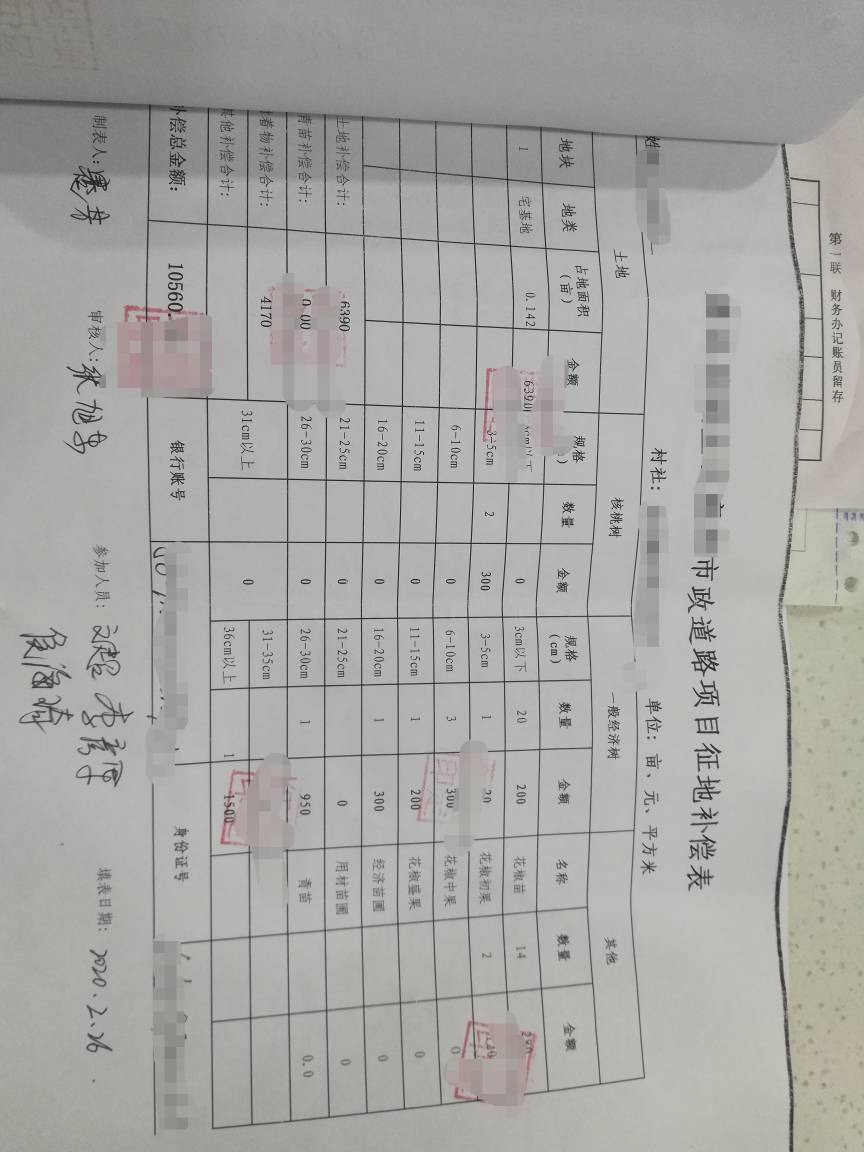 第一联 财务办记账员留存
市政道路项目征地补偿表
姓 村社: 单位: 亩、元、平方米
土地 核桃树 一般经济树 其他
地块 地类 占地面积(亩) 金额 规格 数量 金额 规格(cm) 数量 金额 名称 数量 金额
1 宅基地 0.142 6390 cm以下 0 3cm以下 20 200 花椒苗 14 280
3-5cm 2 300 3-5cm 1 20 花椒初果 2
6-10cm 0 6-10cm 3 300 花椒中果 0
11-15cm 0 11-15cm 1 200 花椒盛果 0
16-20cm 0 16-20cm 1 300 经济苗圃 0
土地补偿合计: 6390 21-25cm 0 21-25cm 0 用材苗圃 0
青苗补偿合计: 0.00 26-30cm 0 26-30cm 1 950 青苗 0.0
着物补偿合计: 4170 31cm以上 0 31-35cm
其他补偿合计: 36cm以上 1 1500
补偿总金额: 10560. 银行账号 身份证号
制表人: 审核人: 张旭 参加人员: 刘超 填表日期: 2020.2.26